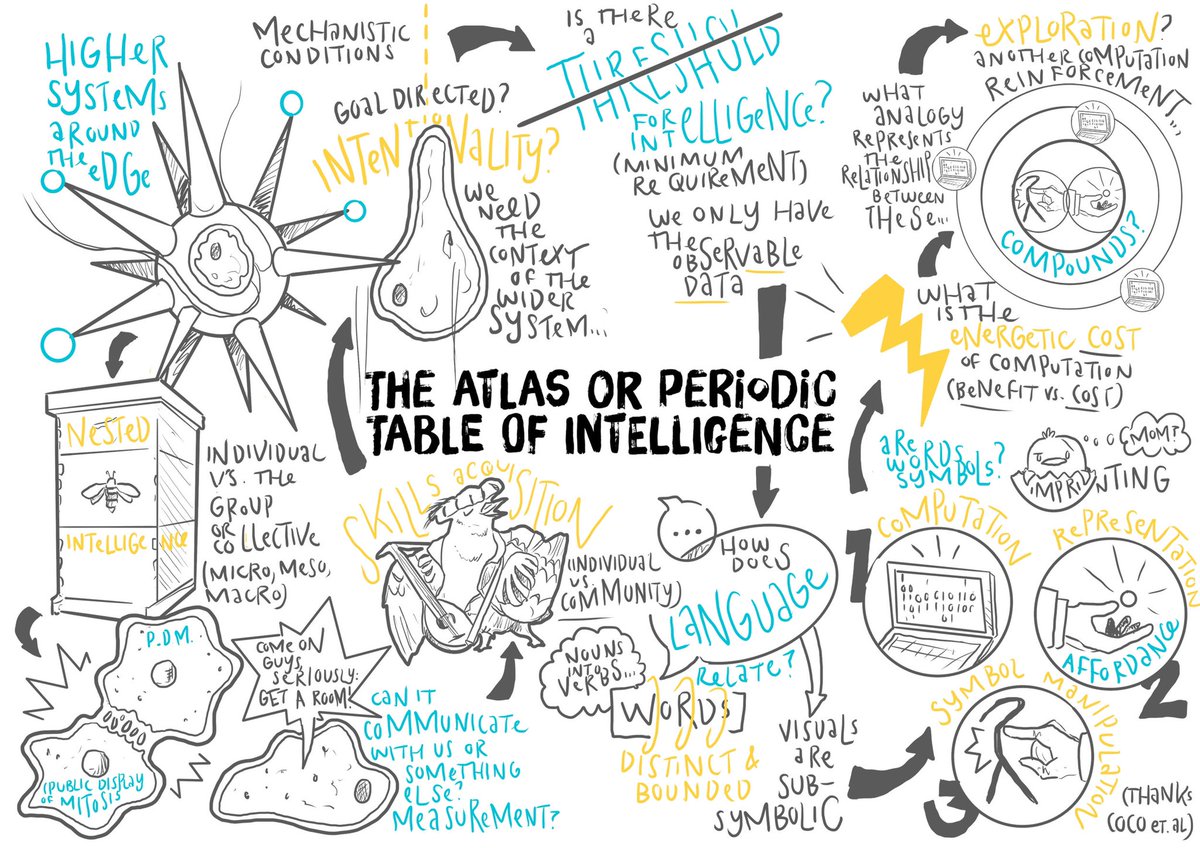 HIGHER
SYSTEMS
AROUND
THE EDGE
MECHANISTIC
CONDITIONS
GOAL DIRECTED?
INTENTIONALITY?
WE
NEED
THE
CONTEXT
OF THE
WIDER
SYSTEM...
IS THERE
A
THRESHOLD
FOR
INTELLIGENCE?
(MINIMUM
REQUIREMENT)
WE ONLY HAVE
THE
OBSERVABLE
DATA
EXPLORATION?
ANOTHER COMPUTATION
REINFORCEMENT...
WHAT
ANALOGY
REPRESENTS
THE
RELATIONSHIP
BETWEEN
THESE...
COMPOUNDS?
WHAT
IS THE
ENERGETIC COST
OF COMPUTATION
(BENEFIT VS. COST)
THE ATLAS OR PERIODIC
TABLE OF INTELLIGENCE
NESTED
INTELLIGENCE
INDIVIDUAL
V'S. THE
GROUP
OR
COLLECTIVE
(MICRO, MESO,
MACRO)
P.D.M.
(PUBLIC DISPLAY
OF MITOSIS
COME ON
GUYS,
SERIOUSLY:
GET A ROOM!
CAN IT
COMMUNICATE
WITH US OR
SOMETHING
ELSE?
MEASUREMENT?
SKILLS ACQUISITION
(INDIVIDUAL
VS.
COMMUNITY)
...
HOW
DOES
LANGUAGE
RELATE?
NOUNS
INTO
VERBS...
[WORDS]
DISTINCT &
BOUNDED
VISUALS
ARE
SUB-
SYMBOLIC
ARE
WORDS
SYMBOLS?
MOM?
IMPRINTING
1
COMPUTATION
REPRESENTATION
AFFORDANCE
2
SYMBOL MANIPULATION
3
(THANKS
COCO ET. AL)